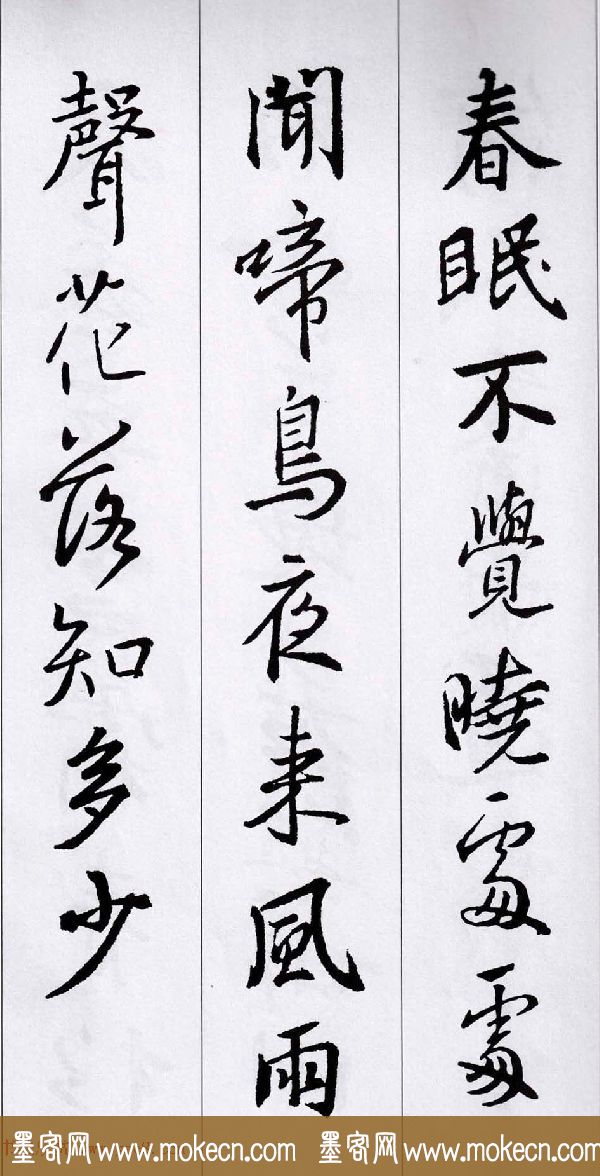 春眠不覺曉處處
聞啼鳥夜来風雨
聲花落知多少
墨客网 www.mokecn.com 墨客网 www.mokecn.com